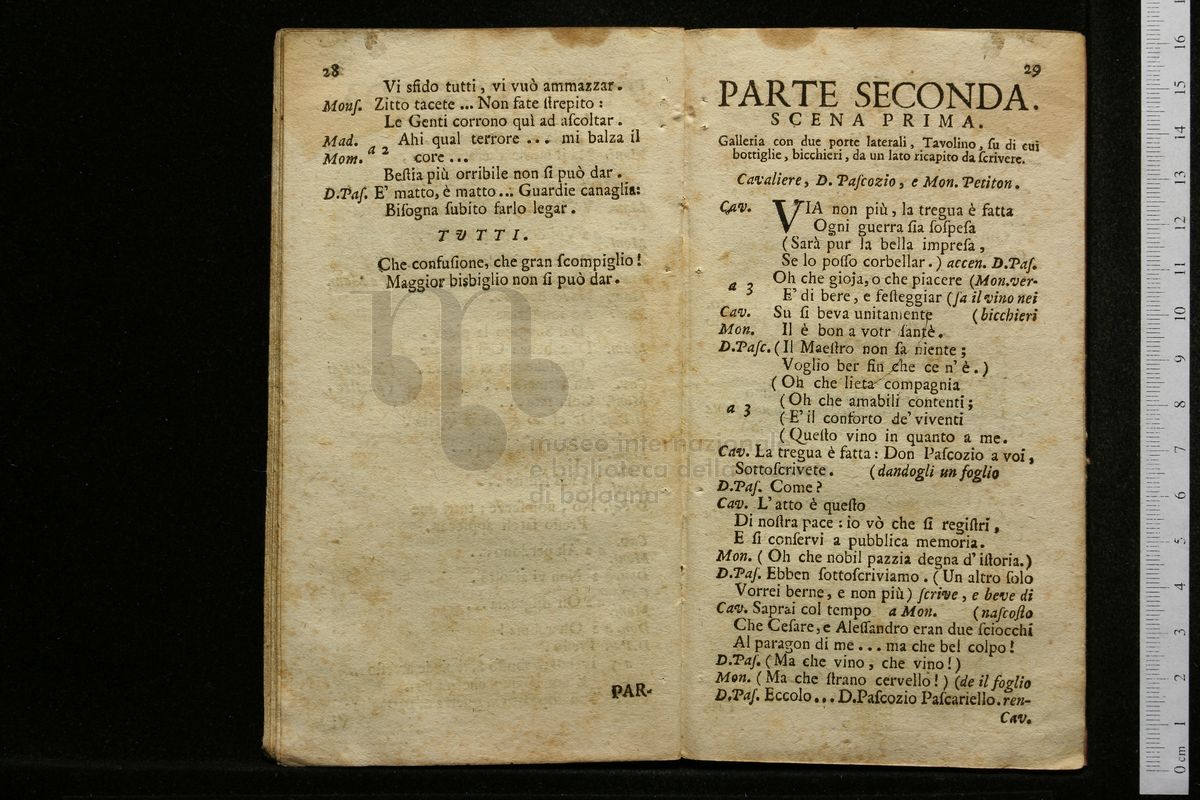 28
Vi sfido tutti, vi vuò ammazzar.
Monſ. Zitto tacete ... Non fate ſtrepito :
Le Genti corrono quì ad aſcoltar.
Mad. Ahi qual terrore ... mi balza il
a 2
Mom. core ...
Beſtia più orribile non ſi può dar.
D.Paſ. E' matto, è matto... Guardie canaglia:
Biſogna ſubito farlo legar.
TUTTI.
Che confuſione, che gran ſcompiglio!
Maggior bisbiglio non ſi può dar.
PAR-
29
PARTE SECONDA.
SCENA PRIMA.
Galleria con due porte laterali, Tavolino, ſu di cui
bottiglie, bicchieri, da un lato ricapito da ſcrivere.
Cavaliere, D. Paſcozio, e Mon. Petiton.
Cav. VIA non più, la tregua è fatta
Ogni guerra ſia ſoſpeſa
(Sarà pur la bella impreſa,
Se lo poſſo corbellar.) accen. D.Paſ.
Oh che gioja, o che piacere (Mon.ver-
a 3
E' di bere, e feſteggiar (ſa il vino nei
Cav. Su ſi beva unitamente (bicchieri
Mon. Il è bon a votr ſantè.
D.Paſc. (Il Maeſtro non ſa niente;
Voglio ber fin che ce n' è.)
(Oh che lieta compagnia
(Oh che amabili contenti;
a 3
(E' il conforto de' viventi
(Queſto vino in quanto a me.
Cav. La tregua è fatta: Don Paſcozio a voi,
Sottoſcrivete. (dandogli un foglio
D.Paſ. Come?
Cav. L' atto è queſto
Di noſtra pace: io vò che ſi regiſtri,
E ſi conſervi a pubblica memoria.
Mon. (Oh che nobil pazzia degna d' iſtoria.)
D.Paſ. Ebben ſottoſcriviamo. (Un altro ſolo
Vorrei berne, e non più) ſcrive, e beve di
Cav. Saprai col tempo a Mon. (naſcoſto
Che Ceſare, e Aleſſandro eran due ſciocchi
Al paragon di me ... ma che bel colpo!
D.Paſ. (Ma che vino, che vino!)
Mon. (Ma che ſtrano cervello!) (de il foglio
D.Paſ. Eccolo... D.Paſcozio Paſcariello. ren-
Cav.
museo internazionale
e biblioteca della
di bologna
0 cm 1 2 3 4 5 6 7 8 9 10 11 12 13 14 15 16